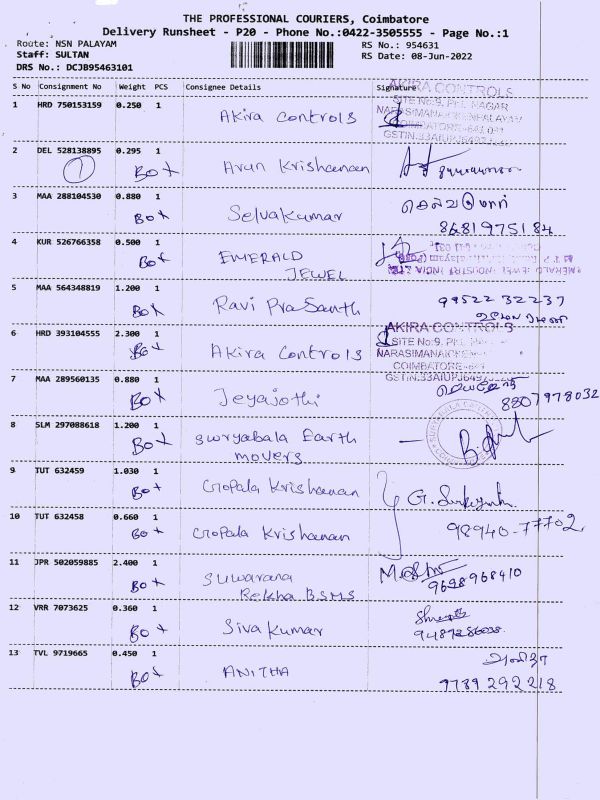 THE PROFESSIONAL COURIERS, Coimbatore
Delivery Runsheet - P20 - Phone No.:0422-3505555 - Page No.:1
Route: NSN PALAYAM
RS No.: 954631
Staff: SULTAN
RS Date: 08-Jun-2022
DRS No.: DCJB95463101
S No Consignment No Weight PCS Consignee Details Signature
AKIRA CONTROLS
1 HRD 750153159 0.250 1 Akira Controls
SITE No:9, PKL NAGAR
NARASIMANAICKENPALAYAM
COIMBATORE-641 031
2 DEL 528138895 0.295 1
1 Box Arun Krishnanan
3 MAA 288104530 0.880 1 செல்வகுமார்
Box Selvakumar 8681975184
4 KUR 526766358 0.500 1
Box EMERALD
JEWEL
EMERALD JEWEL INDUSTRY INDIA LTD
5 MAA 564348819 1.200 1
Box Ravi Prasanth 99522 32237
6 HRD 393104555 2.300 1
AKIRA CONTROLS
Box Akira Controls SITE No:9, PKL
NARASIMANAICKEN
COIMBATORE-641
7 MAA 289560135 0.880 1
Box Jeyajothi 8807978032
8 SLM 297088618 1.200 1
Box Suryabala Earth
movers
9 TUT 632459 1.030 1
Box Gopala Krishanan
10 TUT 632458 0.660 1
Box Gopala Krishanan 98940-77702
11 JPR 502059885 2.400 1
Box Suwarana 9698968410
Rekha BSMS
12 VRR 7073625 0.360 1
Box Siva Kumar
13 TVL 9719665 0.450 1 அனிதா
Box ANITHA 9789 292 218